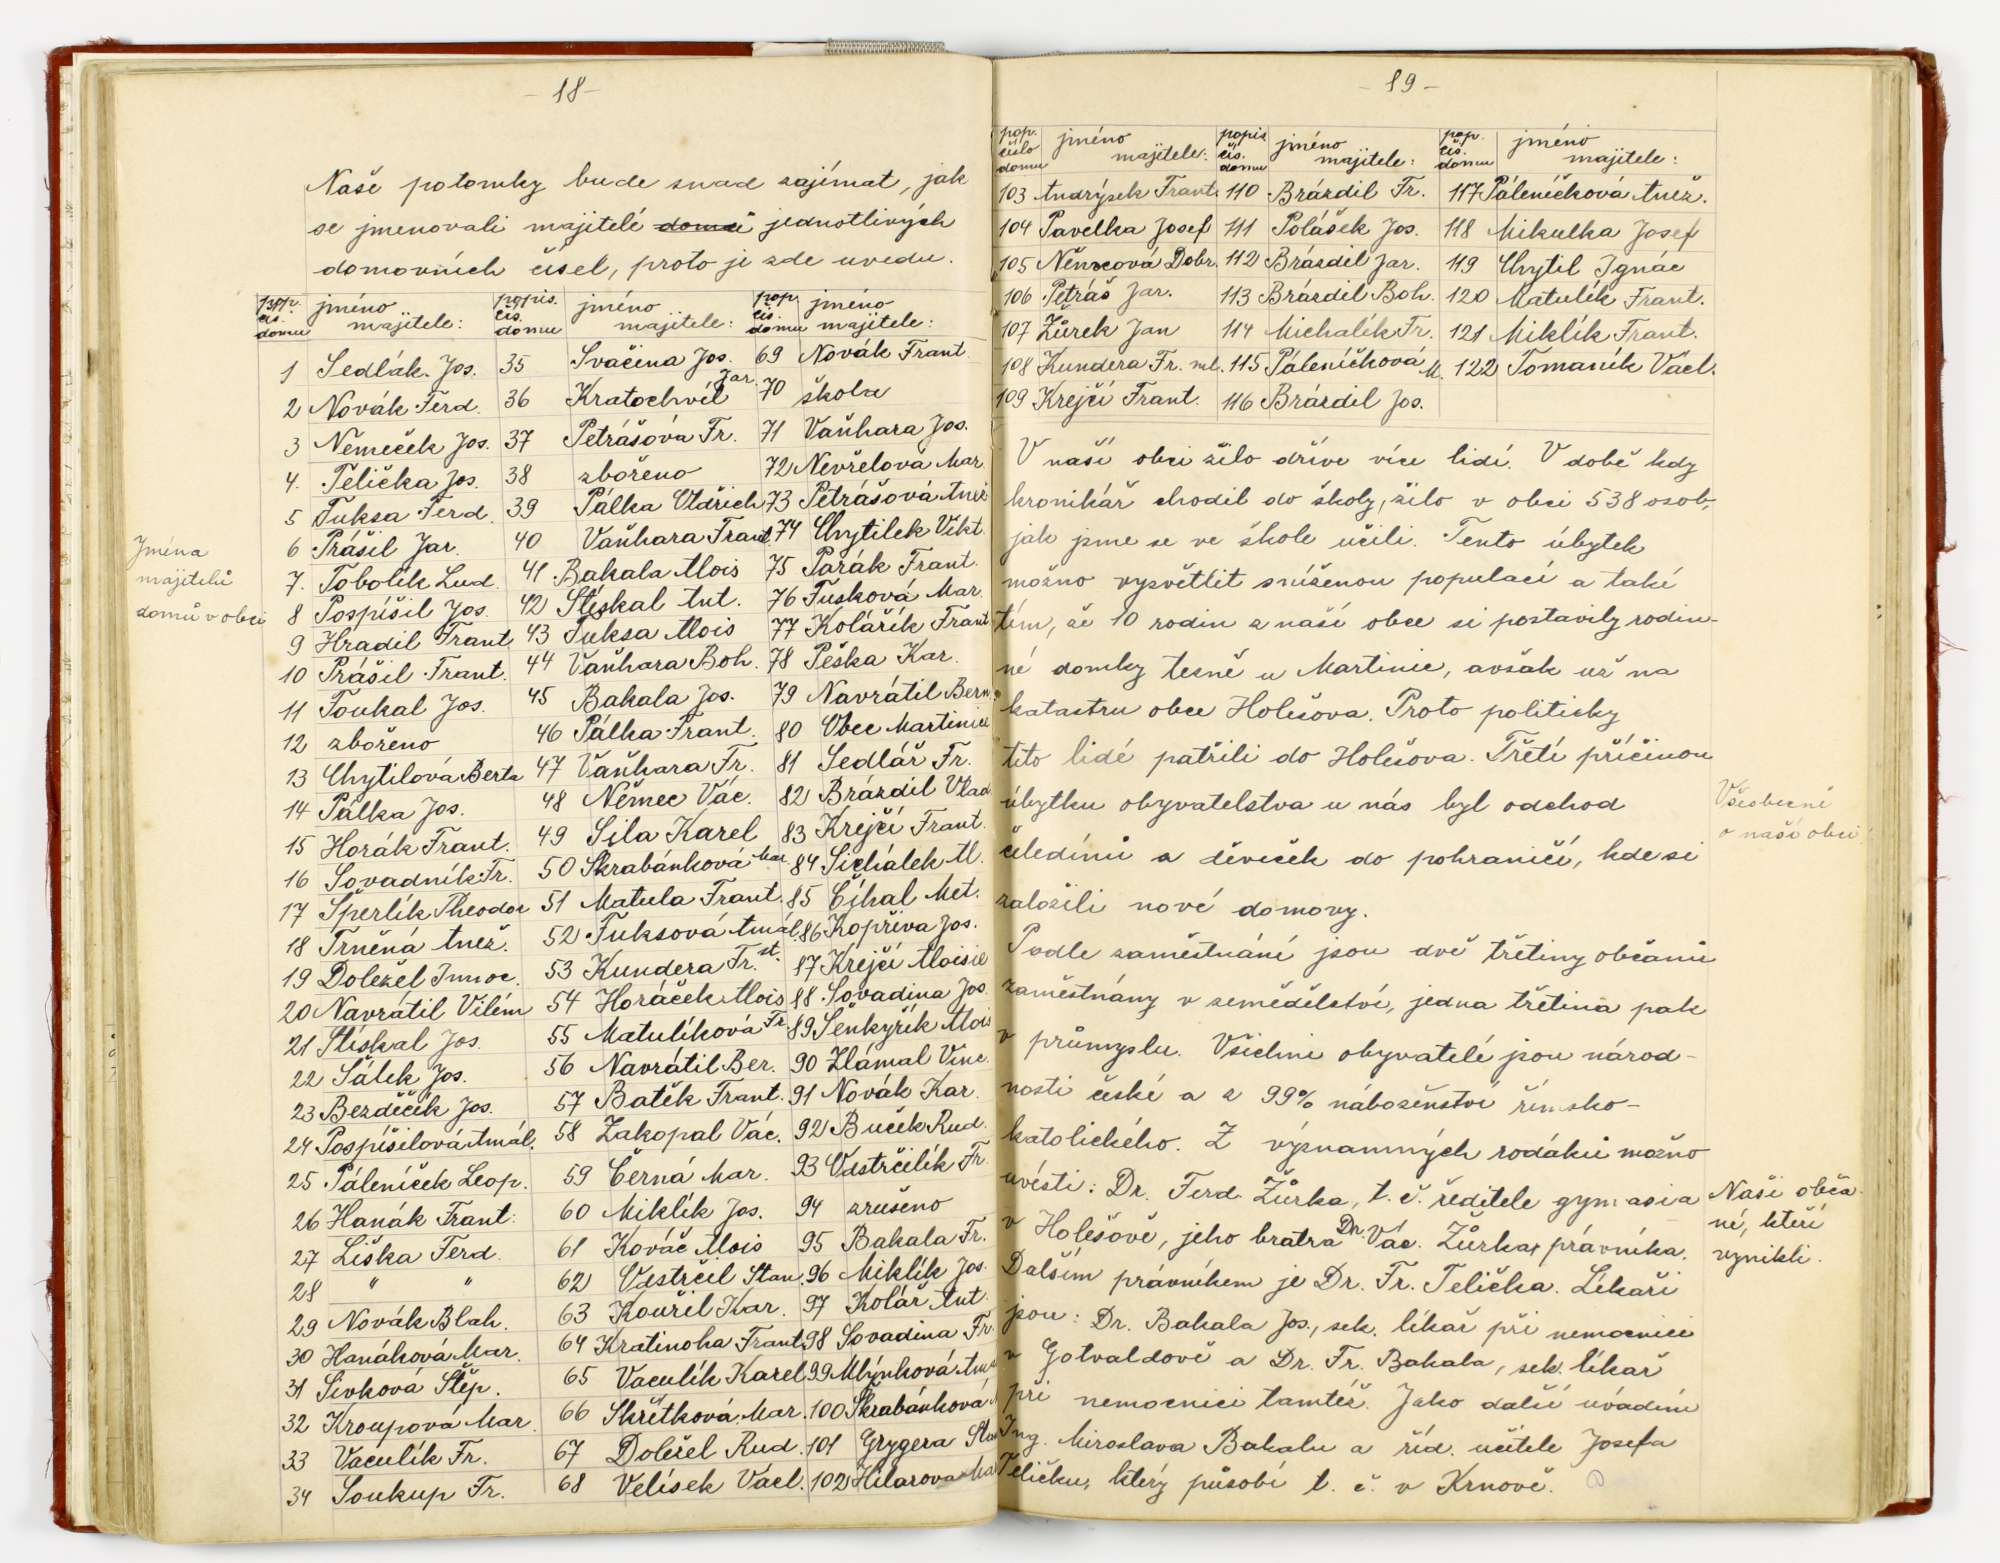 - 18 -
Naše potomky bude snad zajímat, jak
se jmenovali majitelé domů jednotlivých
domovních čísel, proto je zde uvedu.
pop. čís. domu jméno majitele: popis. čís. domu jméno majitele: pop. čís. domu jméno majitele:
1 Sedlák Jos. 35 Svačina Jos. 69 Novák Frant.
2 Novák Ferd. 36 Kratochvíl Jar. 70 škola
3 Němeček Jos. 37 Petrášová Fr. 71 Vaňhara Jos.
4. Telička Jos. 38 zbořeno 72 Nevřelová Mar.
5 Fuksa Ferd. 39 Pálka Oldřich 73 Petrášová Anež
6 Prášil Jar. 40 Vaňhara Frant. 74 Chytilek Vikt.
7. Tobolík Lud. 41 Bakala Alois 75 Parák Frant.
8 Pospíšil Jos. 42 Stískal Ant. 76 Fusková Mar.
9 Hradil Frant. 43 Fuksa Alois 77 Kolářík Frant
10 Prášil Frant. 44 Vaňhara Boh. 78 Peška Kar.
11 Foukal Jos. 45 Bakala Jos. 79 Navrátil Bern.
12 zbořeno 46 Pálka Frant. 80 Obec Martinice
13 Chytilová Berta 47 Vaňhara Fr. 81 Sedlář Fr.
14 Pálka Jos. 48 Němec Vác. 82 Brázdil Vlad
15 Horák Frant. 49 Sila Karel 83 Krejčí Frant.
16 Sovadník Fr. 50 Skrabánková Mar. 84 Sichálek Al.
17 Šperlík Theodor 51 Matula Frant. 85 Číhal Met.
18 Trněná Anež. 52 Fuksová Amál. 86 Kopřiva Jos.
19 Doležel Innoc. 53 Kundera Fr. st. 87 Krejčí Aloisie
20 Navrátil Vilém 54 Horáček Alois 88 Sovadina Jos
21 Stískal Jos. 55 Matulíková Fr. 89 Šenkyřík Alois
22 Šálek Jos. 56 Navrátil Ber. 90 Zlámal Vinc.
23 Bezděčík Jos. 57 Batěk Frant. 91 Novák Kar.
24 Pospíšilová Amál. 58 Zakopal Vác. 92 Buček Rud.
25 Páleníček Leop. 59 Černá Mar. 93 Vystrčilík Fr.
26 Hanák Frant. 60 Miklík Jos. 94 zrušeno
27 Liška Ferd. 61 Kováč Alois 95 Bakala Fr.
28 " " 62 Vystrčil Stan. 96 Miklík Jos.
29 Novák Blah. 63 Kouřil Kar. 97 Kolář Ant.
30 Hanáková Mar. 64 Kratinoha Frant. 98 Sovadina Fr.
31 Sivková Štěp. 65 Vaculík Karel 99 Mlýnková
32 Kroupová Mar. 66 Skřítková Mar. 100 Škrabánková
33 Vaculík Fr. 67 Doležel Rud. 101 Grygera Stan
34 Soukup Fr. 68 Velísek Václ. 102 Hilarova Ma
Jména
majitelů
domů v obci
- 89 -
pop. číslo domu jméno majitele: popis. čís. domu jméno majitele: pop. čís. domu jméno majitele:
103 Andrýsek Frant. 110 Brázdil Fr. 117 Páleníčková Anež.
104 Pavelka Josef 111 Polášek Jos. 118 Mikulka Josef
105 Němcová Dobr. 112 Brázdil Jar. 119 Chytil Ignác
106 Petráš Jar. 113 Brázdil Boh. 120 Matulík Frant.
107 Žůrek Jan 114 Michalík Fr. 121 Miklík Frant.
108 Kundera Fr. ml. 115 Páleníčková M. 122 Tomaník Václ.
109 Krejčí Frant. 116 Brázdil Jos.
V naší obci žilo dříve více lidí. V době kdy
kronikář chodil do školy, žilo v obci 538 osob,
jak jsme se ve škole učili. Tento úbytek
možno vysvětlit sníženou populací a také
tím, že 10 rodin z naší obce si postavily rodin-
né domky těsně u Martinic, avšak už na
katastru obce Holešova. Proto politicky
tito lidé patřili do Holešova. Třetí příčinou
úbytku obyvatelstva u nás byl odchod
čeledínů a děveček do pohraničí, kde si
založili nové domovy.
Podle zaměstnání jsou dvě třetiny občanů
zaměstnány v zemědělství, jedna třetina pak
v průmyslu. Všichni obyvatelé jsou národ-
nosti české a z 99% náboženství římsko-
katolického. Z významných rodáků možno
uvésti: Dr. Ferd. Žůrka, t. č. ředitele gymnasia
v Holešově, jeho bratra Dr. Vác. Žůrka, právníka.
Dalším právníkem je Dr. Fr. Telička. Lékaři
jsou: Dr. Bakala Jos., sek. lékař při nemocnici
v Gotvaldově a Dr. Fr. Bakala, sek. lékař
při nemocnici tamtéž. Jako další uvádím
Ing. Miroslava Bakalu a říd. učitele Josefa
Teličku, který působí t. č. v Krnově.
Všeobecně
o naší obci
Naši obča-
né, kteří
vynikli.